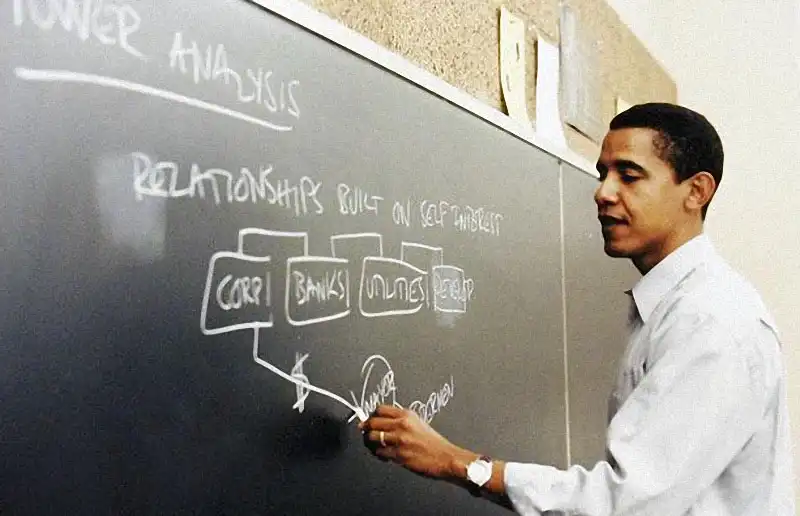 POWER ANALYSIS
RELATIONSHIPS BUILT ON SELF INTEREST
CORP BANKS UTILITIES DEVELOP
$ MAYOR